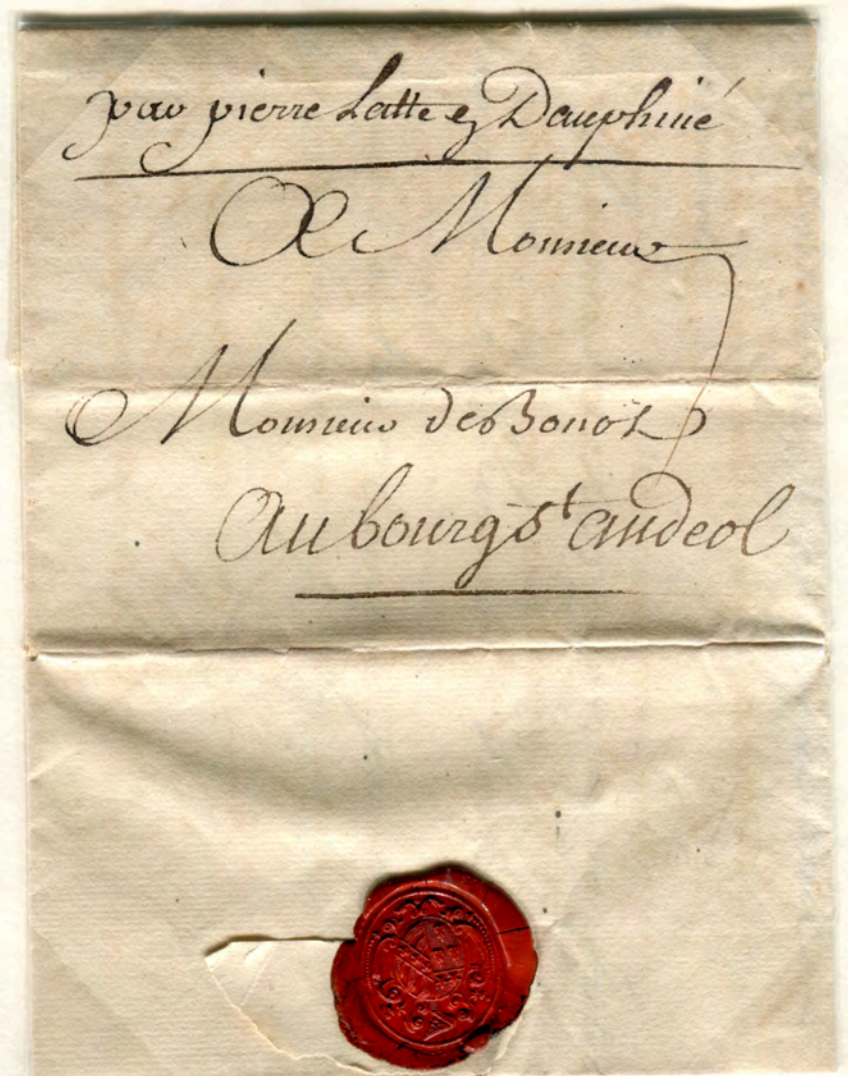 par pierre Latte en Dauphiné
A Monsieur
Monsieur de Bonot
Au bourg St andeol